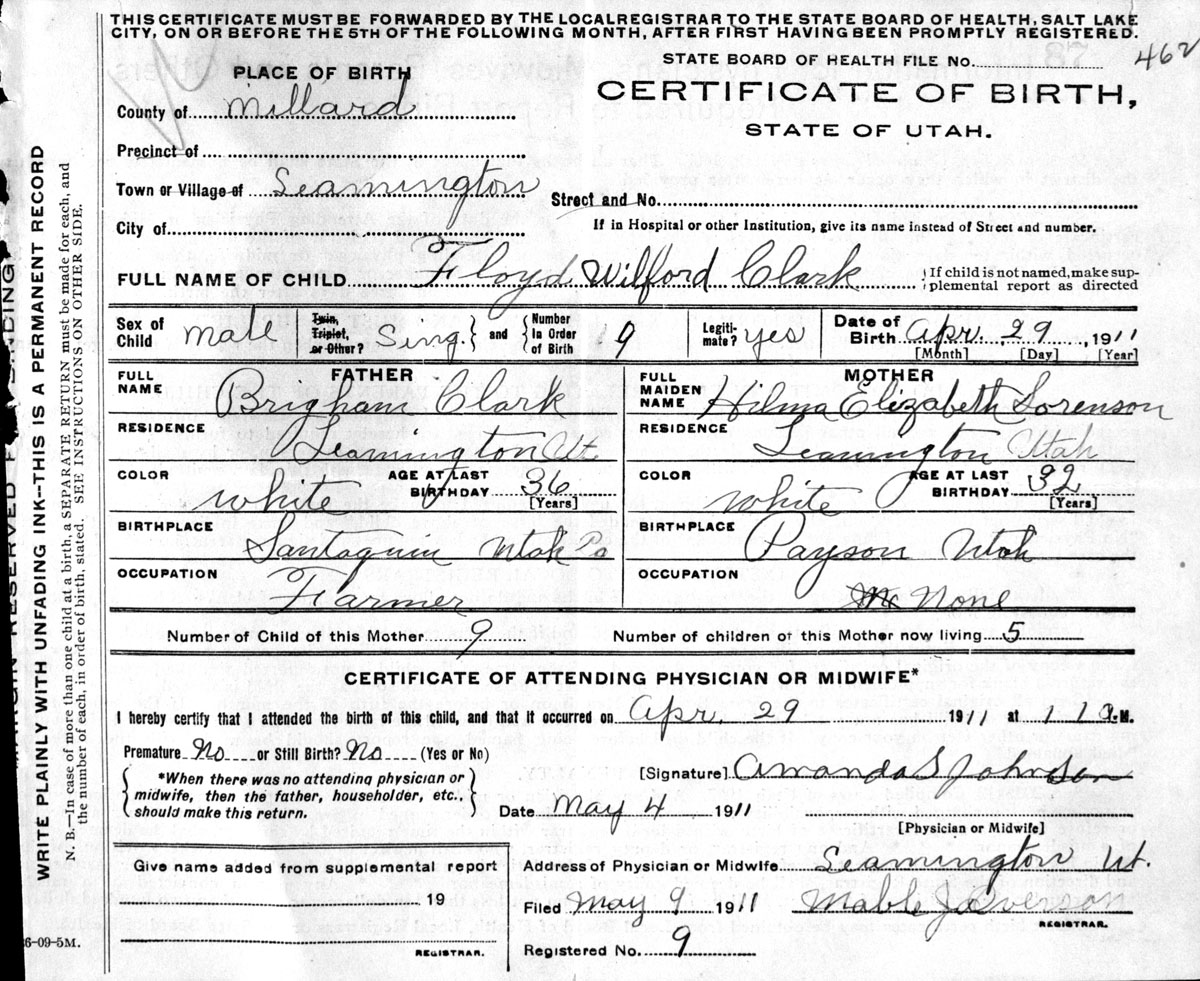 THIS CERTIFICATE MUST BE FORWARDED BY THE LOCAL REGISTRAR TO THE STATE BOARD OF HEALTH, SALT LAKE
CITY, ON OR BEFORE THE 5TH OF THE FOLLOWING MONTH, AFTER FIRST HAVING BEEN PROMPTLY REGISTERED.
STATE BOARD OF HEALTH FILE No. 462
PLACE OF BIRTH
CERTIFICATE OF BIRTH,
STATE OF UTAH.
County of Millard
Precinct of
Town or Village of Leamington
Street and No.
City of
If in Hospital or other Institution, give its name instead of Street and number.
FULL NAME OF CHILD Floyd Wilford Clark {If child is not named, make sup-
plemental report as directed
Sex of Child male Twin, Triplet, or Other? Sing. } and { Number in Order of Birth 9 Legiti-mate? yes Date of Birth Apr. 29, 1911
[Month] [Day] [Year]
FATHER
FULL NAME Brigham Clark
RESIDENCE Leamington Ut.
COLOR white AGE AT LAST BIRTHDAY 36 [Years]
BIRTHPLACE Santaquin Utah Co
OCCUPATION Farmer
MOTHER
FULL MAIDEN NAME Hilma Elizabeth Sorenson
RESIDENCE Leamington Utah
COLOR white AGE AT LAST BIRTHDAY 32 [Years]
BIRTHPLACE Payson Utah
OCCUPATION None
Number of Child of this Mother 9 Number of children of this Mother now living 5
CERTIFICATE OF ATTENDING PHYSICIAN OR MIDWIFE*
I hereby certify that I attended the birth of this child, and that it occurred on Apr. 29 1911 at M.
Premature No or Still Birth? No (Yes or No)
*When there was no attending physician or
midwife, then the father, householder, etc.,
should make this return.
[Signature] Amanda S Johnson
Date May 4 1911
[Physician or Midwife]
Give name added from supplemental report
19
REGISTRAR.
Address of Physician or Midwife Leamington Ut.
Filed May 9 1911 Mable
REGISTRAR.
Registered No. 9
6-09-5M.
WRITE PLAINLY WITH UNFADING INK--THIS IS A PERMANENT RECORD
N. B.—In case of more than one child at a birth, a SEPARATE RETURN must be made for each, and
the number of each, in order of birth, stated. SEE INSTRUCTIONS ON OTHER SIDE.